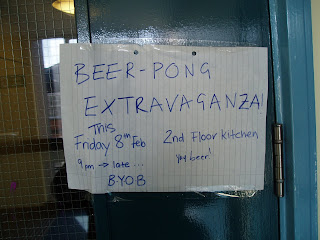 BEER-PONG
EXTRAVAGANZA!
This
Friday 8th Feb
9pm → late...
B.Y.O.B
2nd Floor kitchen
yay beer!